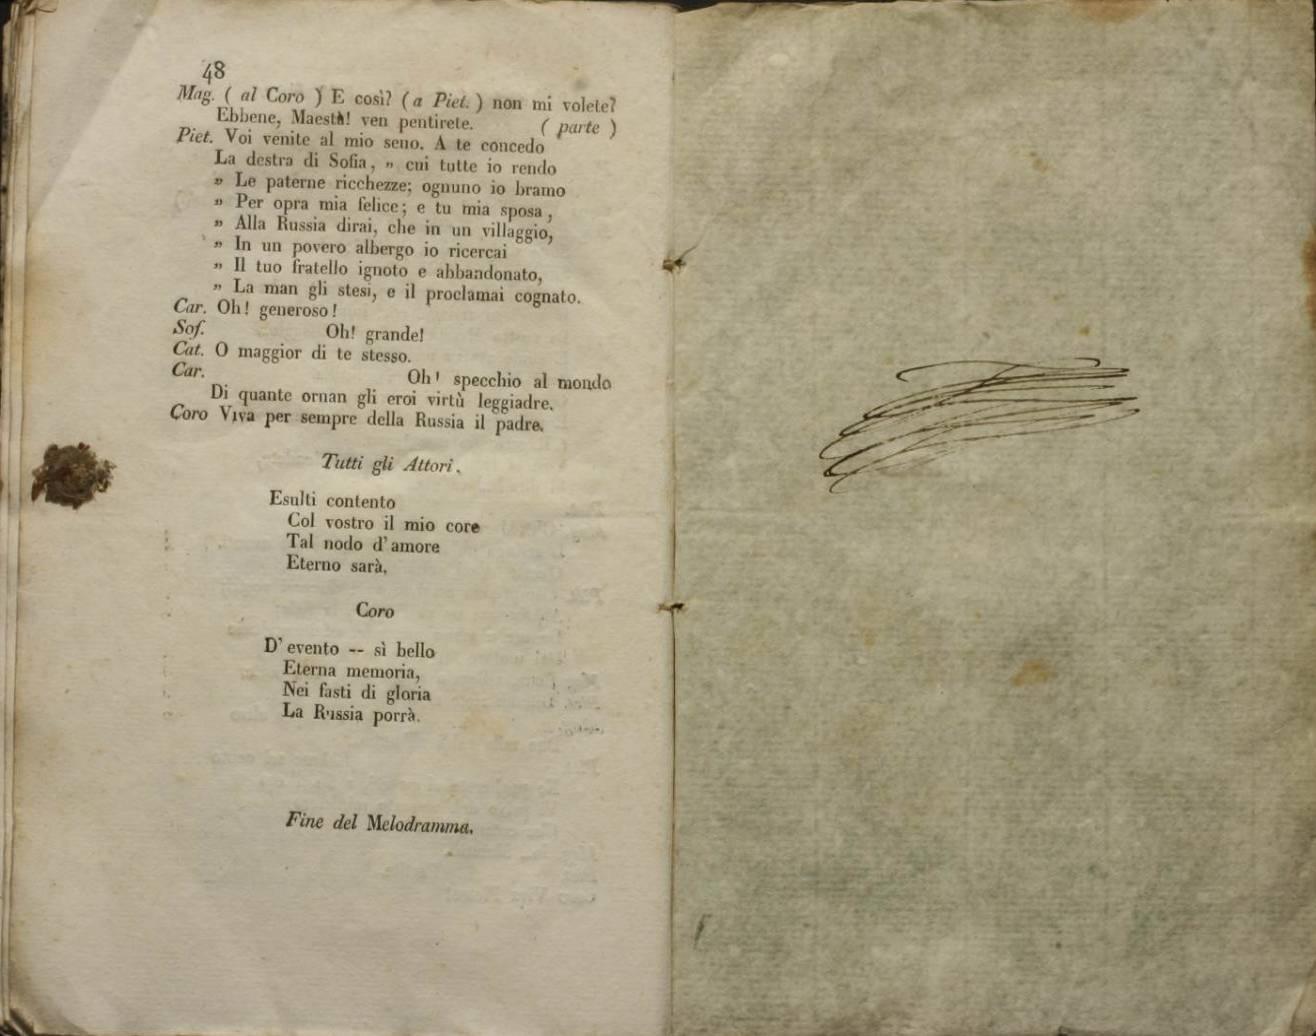 48
Mag. ( al Coro ) E così? ( a Piet. ) non mi volete?
Ebbene, Maestà! ven pentirete. ( parte )
Piet. Voi venite al mio seno. A te concedo
La destra di Sofia, „ cui tutte io rendo
„ Le paterne ricchezze; ognuno io bramo
„ Per opra mia felice; e tu mia sposa,
„ Alla Russia dirai, che in un villaggio,
„ In un povero albergo io ricercai
„ Il tuo fratello ignoto e abbandonato,
„ La man gli stesi, e il proclamai cognato.
Car. Oh! generoso!
Sof. Oh! grande!
Cat. O maggior di te stesso.
Car. Oh! specchio al mondo
Di quante ornan gli eroi virtù leggiadre.
Coro Viva per sempre della Russia il padre.
Tutti gli Attori.
Esulti contento
Col vostro il mio core
Tal nodo d'amore
Eterno sarà.
Coro
D'evento -- sì bello
Eterna memoria,
Nei fasti di gloria
La Russia porrà.
Fine del Melodramma.